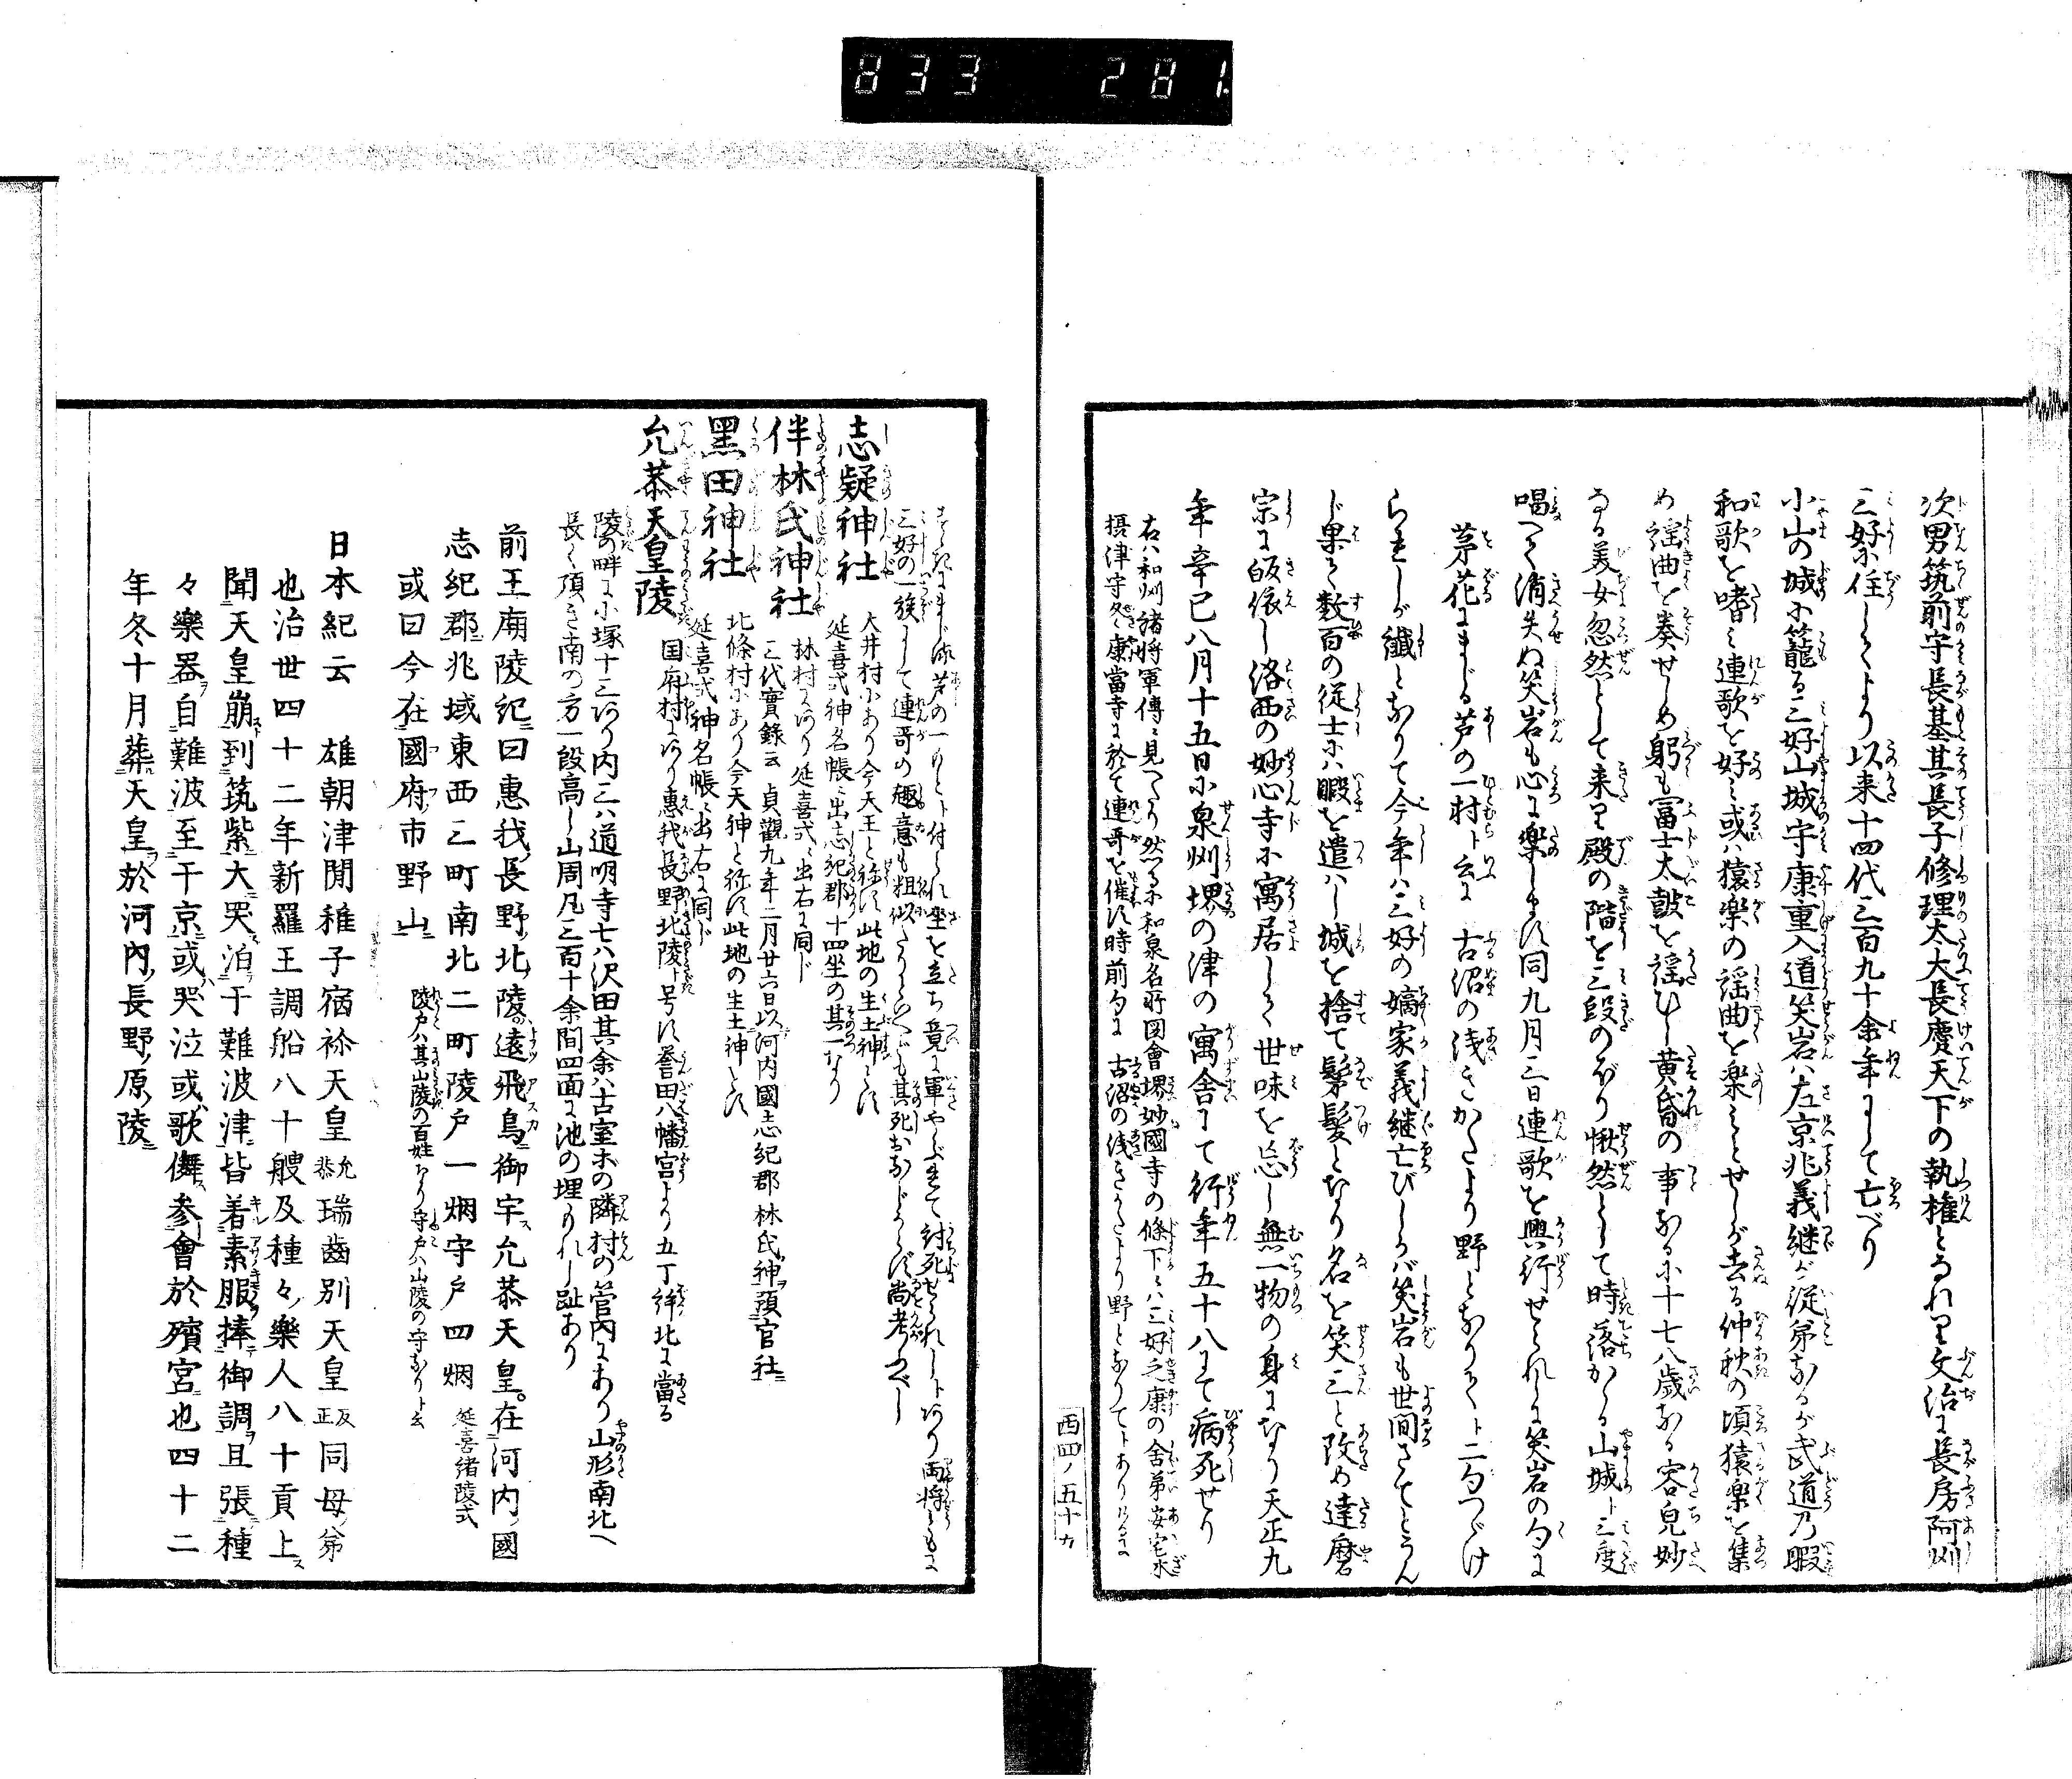 833 281
次男筑前守長基其長子修理太夫長慶天下の執権となれり文治に長房阿州
三好に住してより以来十四代三百九十余年にして亡べり
小山の城に籠る三好山城守康重入道笑岩ハ左京兆義継が従弟なるが武道の暇
和歌を嗜ミ連歌を好ミ或ハ猿楽の謡曲を楽ミとせしが去る仲秋の頃猿楽を集
め謡曲を奏せしめ躬も冨士太皷を謡ひし黄昏の事なるに十七八歳なる容皃妙
なる美女忽然として来り殿の階を三段のぼり愀然として時落かゝる山城ト三度
唱へて消失ぬ笑岩も心に楽しまず同九月三日連歌を興行せられしに笑岩の句に
茅花にまじる芦の一村ト云に 古沼の浅きかたより野となりてト二句つゞけ
られしが纎となりて今年ハ三好の嫡家義継亡びしかバ笑岩も世間さてとうん
じ果て数百の従士にハ暇を遣ハし城を捨て髣髪となり名を笑三と改め達磨
宗に皈依し洛西の妙心寺に寓居して世味を忘し無一物の身になり天正九
年辛巳八月十五日に泉州堺の津の寓舎にて行年五十八にて病死せり
右ハ和州諸将軍傳ニ見へたり然るに和泉名所図會堺妙國寺の條下ニハ三好之康の舎弟安宅水
摂津守冬康當寺に於て連哥を催す時前句に 古沼の浅きかたより野となりてトありけるに
西四ノ五十九
芦の一むらト付られ坐を立ち竟に軍やぶれて討死せられしトあり両将ともに
三好の一族にして連哥の趣意も粗似たりといへども其死おなじからず尚考ふべし
志疑神社 大井村にあり今天王と称す此地の生土神とす
延喜式神名帳ニ出志紀郡十四坐の其一なり
伴林氏神社 林村にあり延喜式ニ出右に同じ
三代實錄云貞觀九年二月廿六日以河内國志紀郡林氏神預官社
黑田神社 北條村にあり今天神と称す此地の生土神とす
延喜式神名帳ニ出右に同じ
允恭天皇陵 国府村にあり惠我長野北陵ト号す誉田八幡宮より五丁斗北に當る
陵の畔に小塚十三あり内二ハ道明寺七八沢田其余ハ古室ホの隣村の管内にあり山形南北へ
長く頂き南の方一段高し山周凡三百十余間四面に池の埋もれし趾あり
前王廟陵紀曰惠我長野北陵遠飛鳥御宇允恭天皇在河内國
志紀郡兆域東西三町南北二町陵戸一烟守戸四烟 延喜諸陵式
或曰今在國府市野山 陵戸ハ其山陵の百姓なり守戸ハ山陵の守なりト云
日本紀云 雄朝津間稚子宿祢天皇允恭瑞齒別天皇反正同母弟
也治世四十二年新羅王調船八十艘及種々樂人八十貢上
聞天皇崩到筑紫大哭泊于難波津皆着素服捧御調且張種
々樂器自難波至于京或哭泣或歌儛参會於殯宮也四十二
年冬十月葬天皇於河内長野原陵